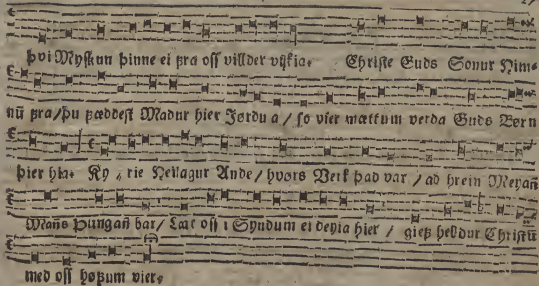 þvi Myskun þinne ei fra oss villder vijkia. Christe Guds Sonur Him⸗
nū fra/þu fæddest Madur hier Jørdu a / so vier mættum verda Guds Børn
þier hia. Ky⸗rie Heilagur Ande/ hvørs Verk þad var / ad hrein Meyañ
Mañs Þungañ bar/ Lat oss i Syndum ei deyia hier / gief helldur Christū
med oss høfum vier.